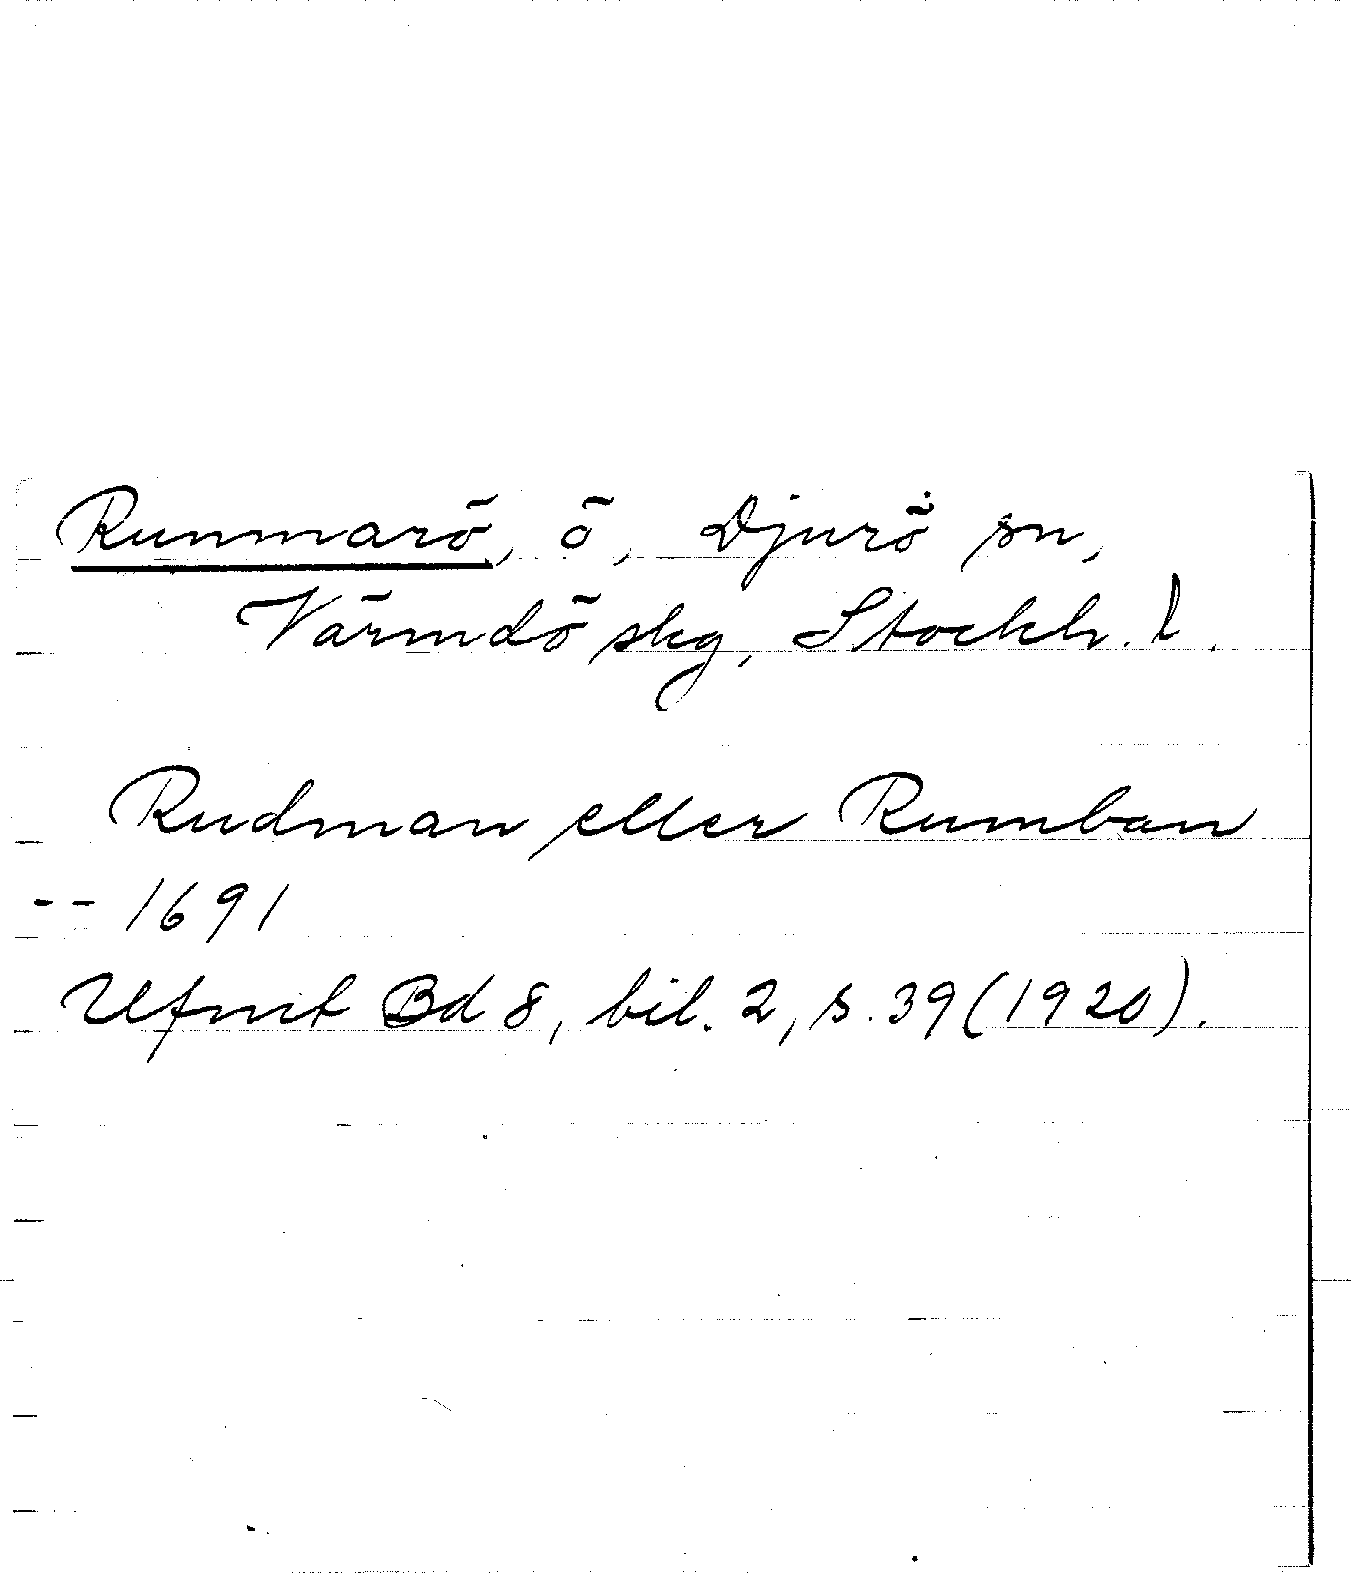 Runmarö, ö, Djurö sn,
Värmdö skg, Stockh. l.
Rudman eller Rumban
-- 1691
Ufmt Bd 8, bil. 2, s. 39 (1920).